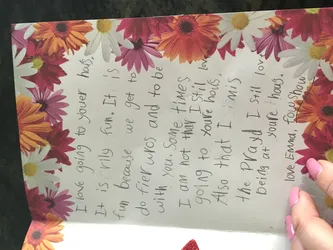 I love going to youer hous.
It is rily fun. It is
fun because we get to
do fier wros and to be
with you. Some times
I am not thir I still lov
going to youre hous.
Also that I imis
the Prayd I still lov
being at youre ihous.
love Emma, Forshow